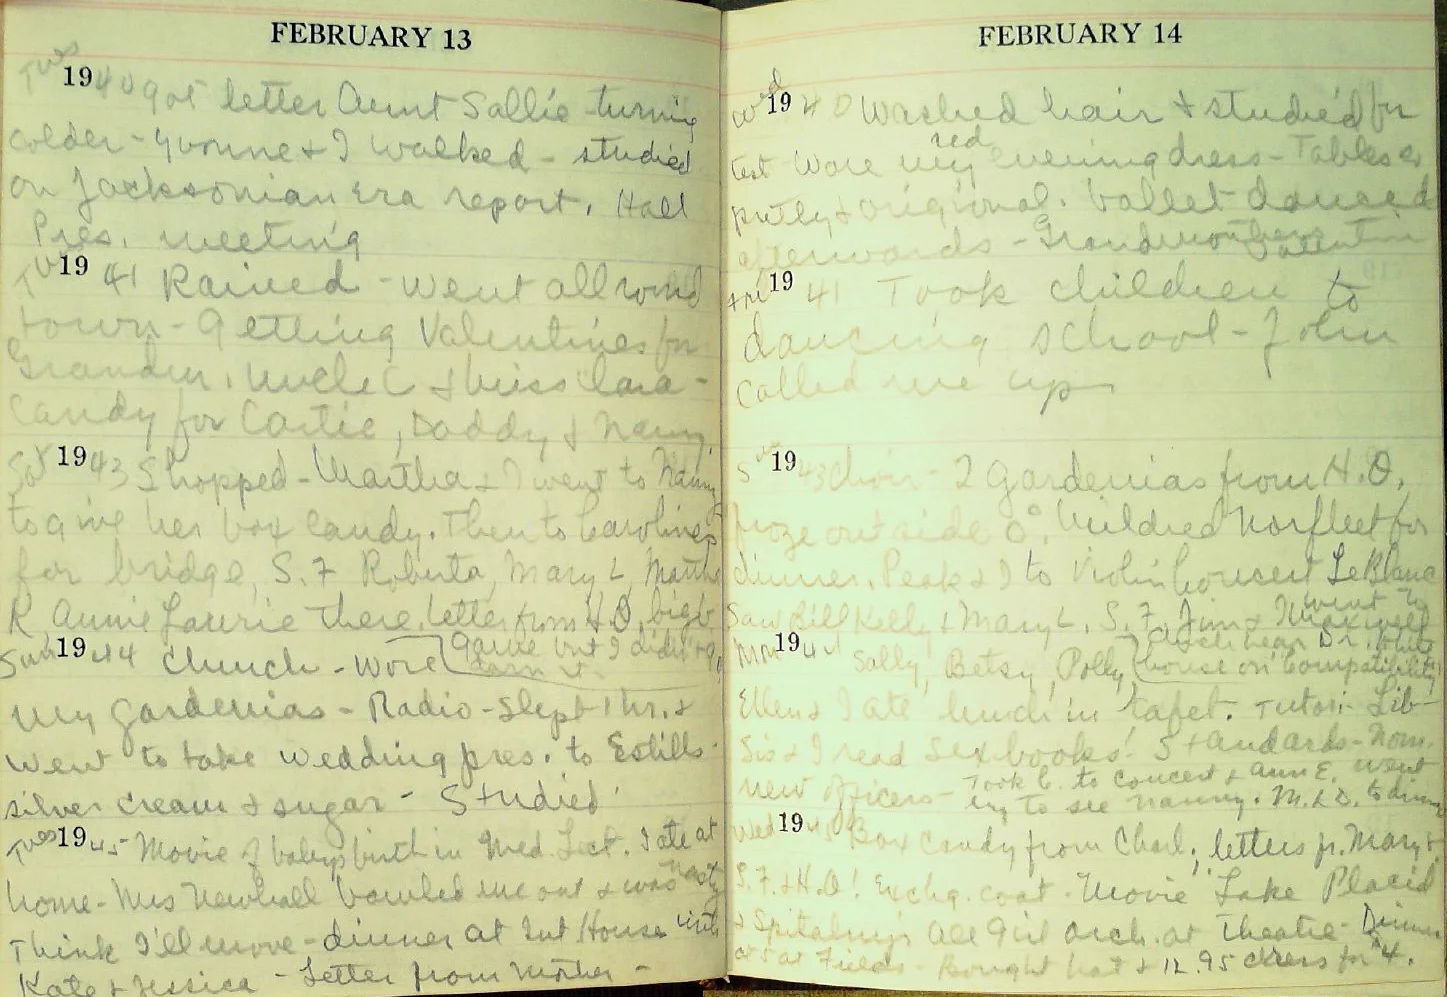 FEBRUARY 13
Tues
1940 got letter Aunt Sallie turning
colder - Yvonne & I walked - studied
on Jacksonian Era report. Hall
Pres. meeting
1941 Rained - went all round
town - getting Valentines for
Grandm, Uncle C & Miss Clara -
candy for Castie, Daddy & Nanny.
Sat 1943 Shopped - Martha & I went to Nanny
to give her box candy. Then to Carolines
for bridge, S.F. Roberta, Mary L, Martha
R, Annie Laurie there. Letter from H.O. big
game but I didn't go
Sun 1944 Church - wore
my gardenias - Radio - slept 1 hr. &
went to take wedding pres. to Estills.
silver cream & sugar - Studied
Tues 1945 Movie of baby's birth in Med. Lect. I ate at
home - Mrs Newhall bawled me out & was nasty
Think I'll move - dinner at Int House with
Kate & Jessica - Letter from Mother -
FEBRUARY 14
Wed 1940 Washed hair & studied for
red
test Wore my evening dress - Tables so
pretty & origional. ballet danced
afterwards - Grandmothers
Fri 1941 Took children to
dancing school - John
called me up
1943 Choir - 2 gardenias from H.O.
froze outside 0°. Mildred Norfleet for
dinner. Peak & I to Violin Concert LeBlanc
Saw Bill Kelly & Mary L. S.F. Jim &
went to
hear Dr. White
Sally, Betsy, Polly, house on Compatibility
Ellen & I ate lunch in Cafet. Tutor - Lib-
Sis & I read sex books! Standards - nom.
new officers - Took C. to concert & Ann E. went
to see Nanny. M. & D. to dinner
Wed 1945 Box candy from Charl., letters fr. Mary &
S.F. & H.O! Exchg. coat. Movie Lake Placid
& Spitalny's all Girl Orch. at Theatre - Dinner
at Fields - Bought hat & 12.95 dress for $4.